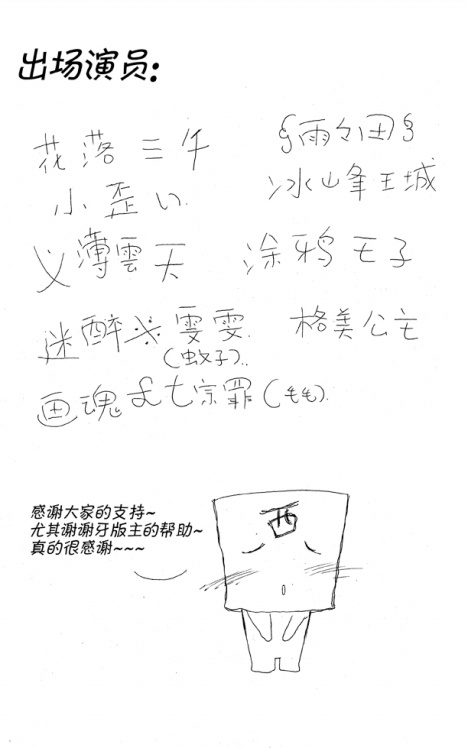 出场演员:
花落三午 ξ雨の田ξ
小歪い 冰山峰王城
义薄雲天 涂鸦王子
迷醉※雯雯 格美公主
(蚊子)..
画魂 七宗罪(毛毛).
感谢大家的支持~
尤其谢谢牙版主的帮助~
真的很感谢~~~
西